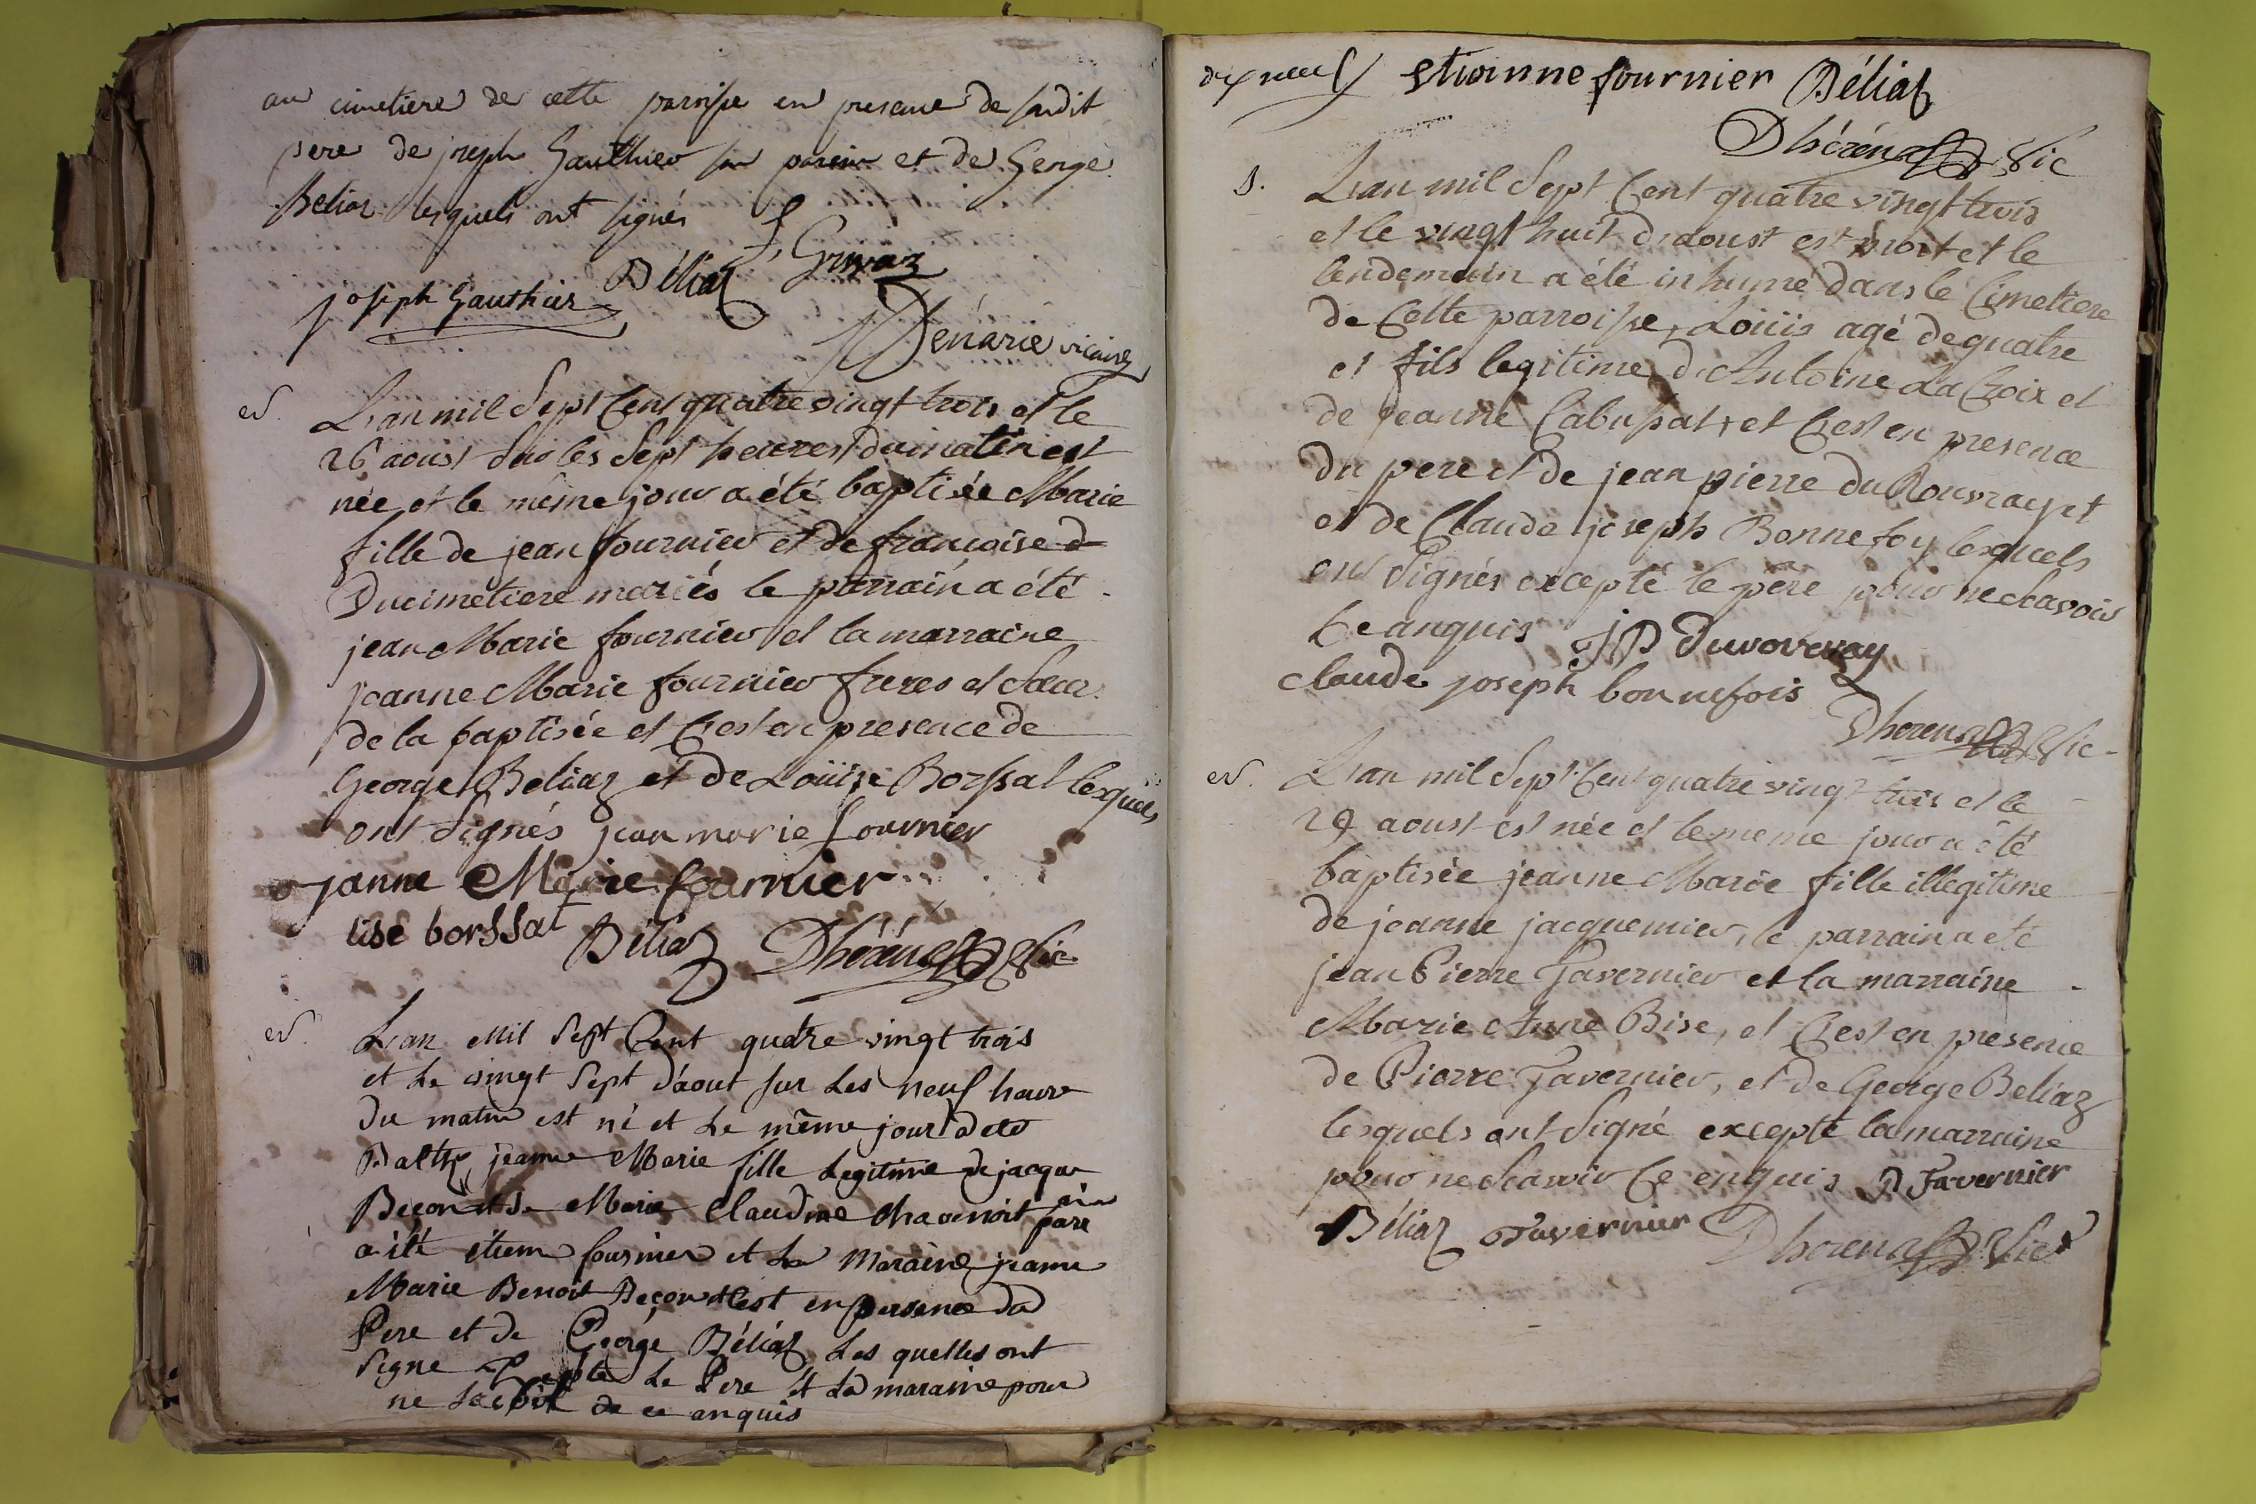 au cimetiere de cette paroisse en presence de sudit
pere de joseph Gauthier son parein et de George
Beliaz lesquels ont signés
f, Grivaz
joseph Gauthier Béliaz
Dénarié vicaire
L'an mil Sept Cent quatre vingt trois et le
26 aoust sur les Sept heures du matin est
née et le même jour a été baptisée Marie
fille de jean fournier et de francoise d
Ducimetiere mariés le parrain a été
jean Marie fournier et la marraine
jeanne Marie fournier freres et Sœur
de la baptisée et C'est en presence de
George Beliaz et de Loüise Borssat lesquels
ont Signés jean marie fournier
janne Marie fournier
lise borssat Béliaz Dhéréns Vic
L'an Mil Sept Cent quatre vingt trois
et Le vingt Sept d'aout sur Les neuf heure
du matin est né et Le même jour a ete
Batt jeanne Marie fille Legitime de jacque
Beçon et de Marie Claudine Chavenoit parain
a été étienne fournier et La Maraine jeanne
Marie Benoit Beçon et C'est en persence du
Pere et de George Béliaz Les quelles ont
Signe excepte Le Pere et La maraine pour
ne de ce anquis
dix neuf etiennne fournier Béliaz
Dhéréns Vic
s. L'an mil Sept Cent quatre vingt trois
et le vingt huit d'aoust est mort et le
lendemain a été inhumé dans le Cimetiere
de Cette parroisse, Loüis agé de quatre
et fils legitime d'Antoine La Croix et
de jeanne Cabussat, et C'est en presence
du pere et de jean pierre du Rouvrayet
et de Claude joseph Bonnefoy lesquels
ont Signés excepté le pere pour ne Scavoir
Ce anquis JP Duvoveray
Claude joseph bonnefois
Dhoréns Vic
L'an mil Sept Cent quatre vingt trois et le
29 aoust est née et le meme jour a été
baptisée jeanne Marie fille illegitime
de jeanne jacquemier, le parrain a eté
jean Pierre Tavernier et la marraine
Marie Anne Bise, et C'est en presence
de Pierre Tavernier, et de George Beliaz
lesquels ont Signé excepté la marraine
pour ne Scavoir Ce enquis P Tavernier
Béliaz Tavernier Dhoréns Vic